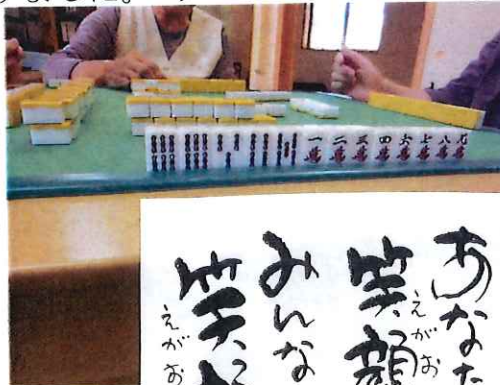 ました。
一萬 二萬 三萬 四萬 六萬 七萬 八萬 九萬
あなた
笑顔
えがお
みんな
笑
えがお